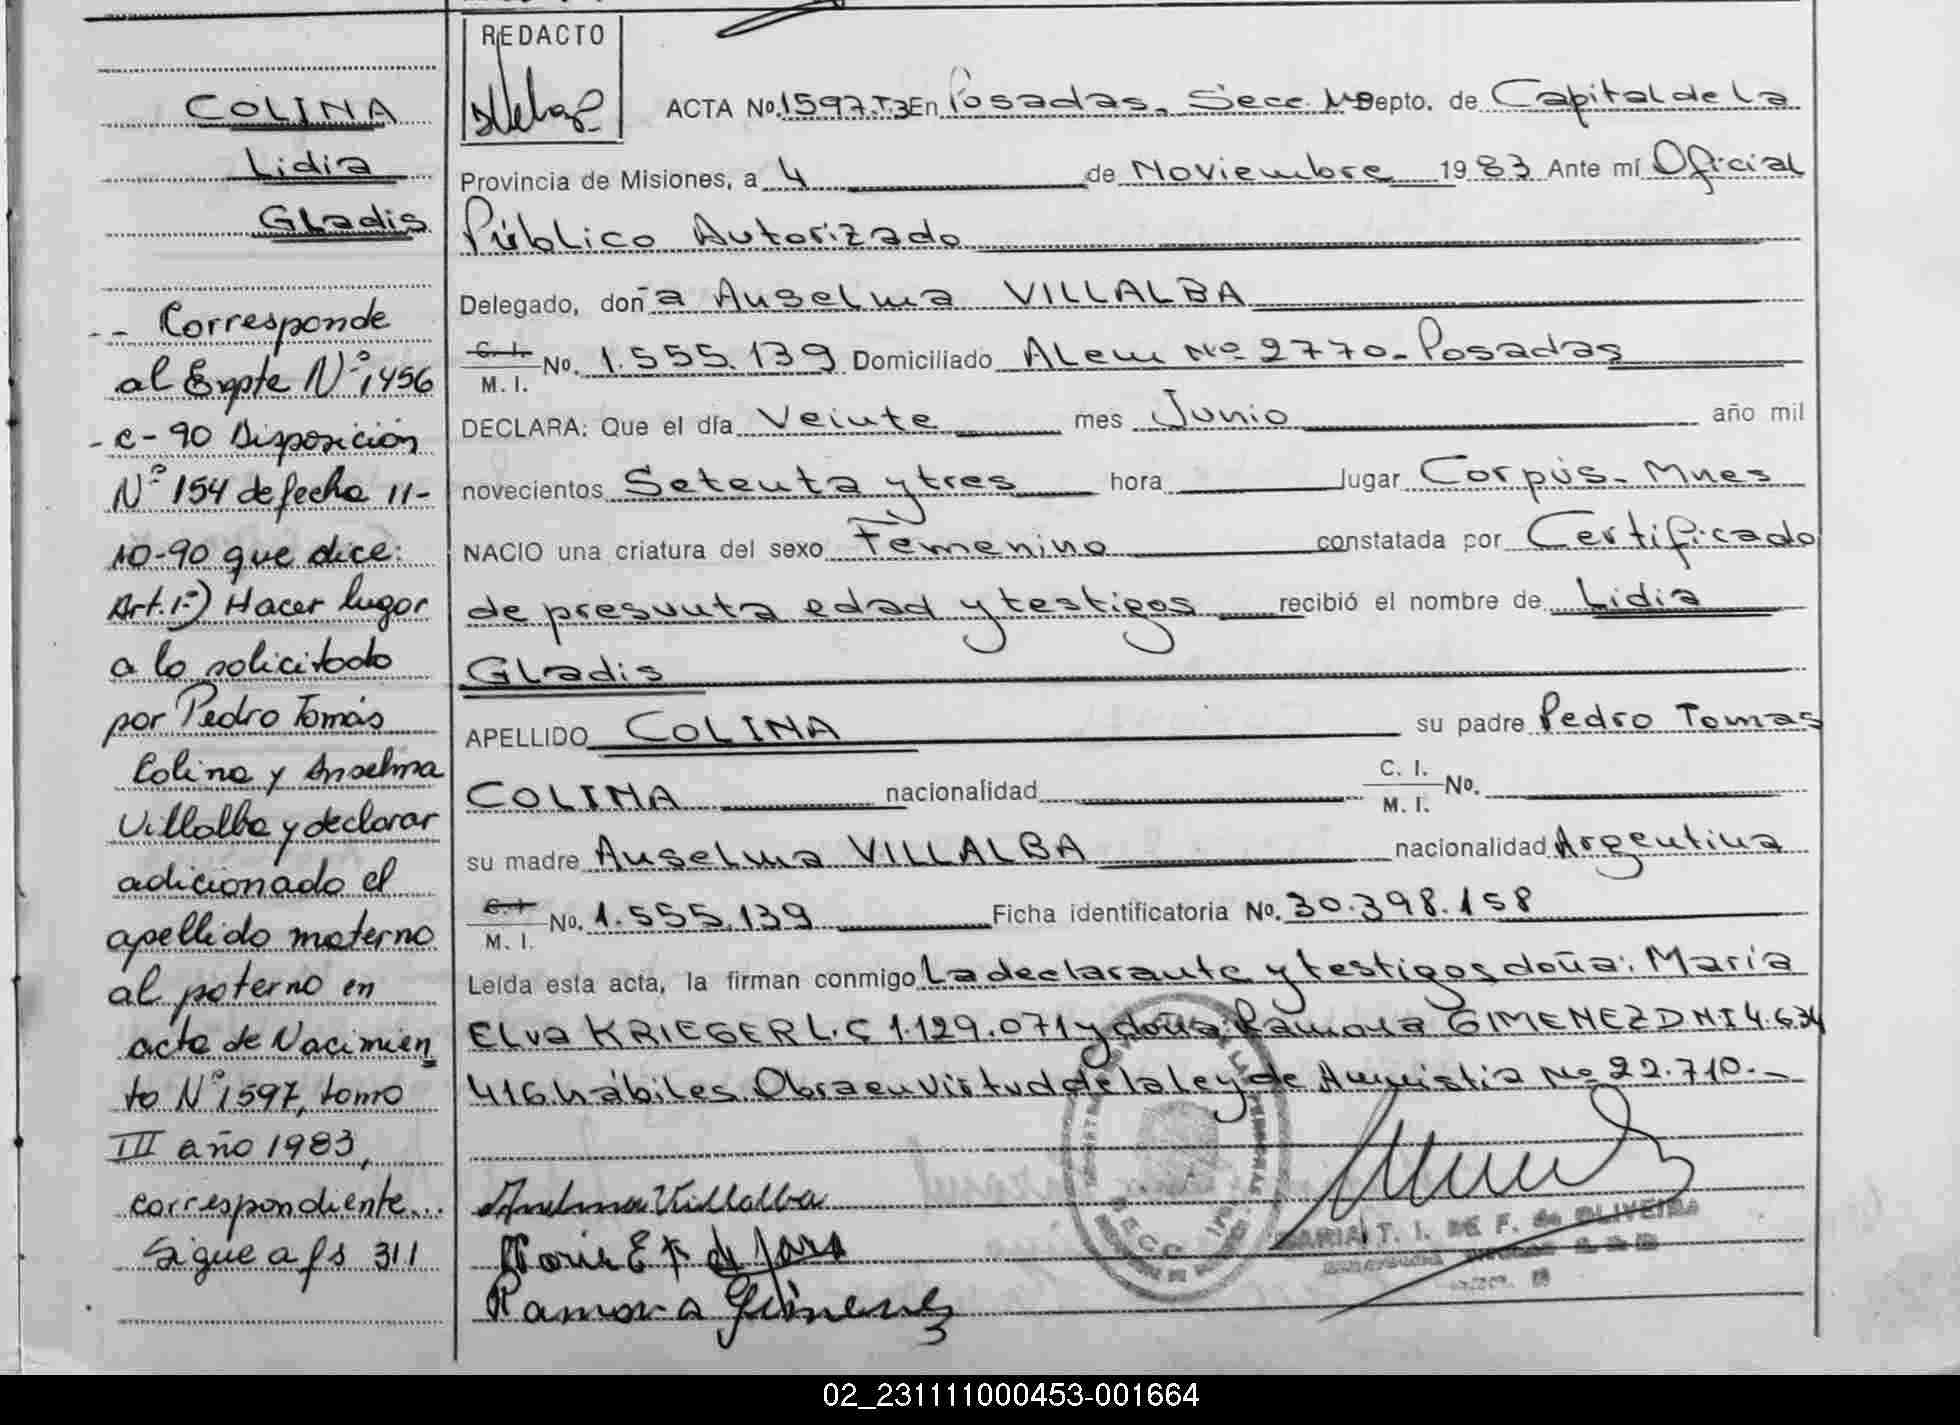 COLINA
Lidia
Gladis
-- Corresponde
al Expte Nº 1456
- C - 90 Disposición
Nº 154 de fecha 11-
10-90 que dice:
Art. 1º) Hacer lugar
a lo solicitado
por Pedro Tomás
Colina y Anselma
Villalba y declarar
adicionado el
apellido materno
al paterno en
acta de Nacimien
to Nº 1597, tomo
III año 1983,
correspondiente...
Sigue a fs 311
REDACTO
ACTA Nº. 1597.T3 En Posadas, Secc. Depto. de Capital de La
Provincia de Misiones, a 4 de Noviembre 1983 Ante mí Oficial
Público Autorizado
Delegado, doña Anselma VILLALBA
C. I. M. I. No. 1.555.139 Domiciliado Alem Nº 2770- Posadas
DECLARA: Que el día Veinte mes Junio año mil
novecientos Setenta y tres hora lugar Corpus- Mnes
NACIO una criatura del sexo Femenino constatada por Certificado
de presunta edad y testigos recibió el nombre de Lidia
Gladis
APELLIDO COLINA su padre Pedro Tomas
COLINA nacionalidad C. I. M. I. No.
su madre Anselma VILLALBA nacionalidad Argentina
C. I. M. I. No. 1.555.139 Ficha identificatoria No. 30.398.158
Leída esta acta, la firman conmigo La declarante y testigos doña: María
Elva KRIEGER L.C 1.129.071 y doña: Ramona GIMENEZ DNI 4.634
416 hábiles. Obra en virtud de la ley de Amnistia Nº 22.710.-
Anselma Villalba
Maria E K de Jara
Ramona Gimenez
MARIA T. I. DE F. de OLIVEIRA
02_231111000453-001664